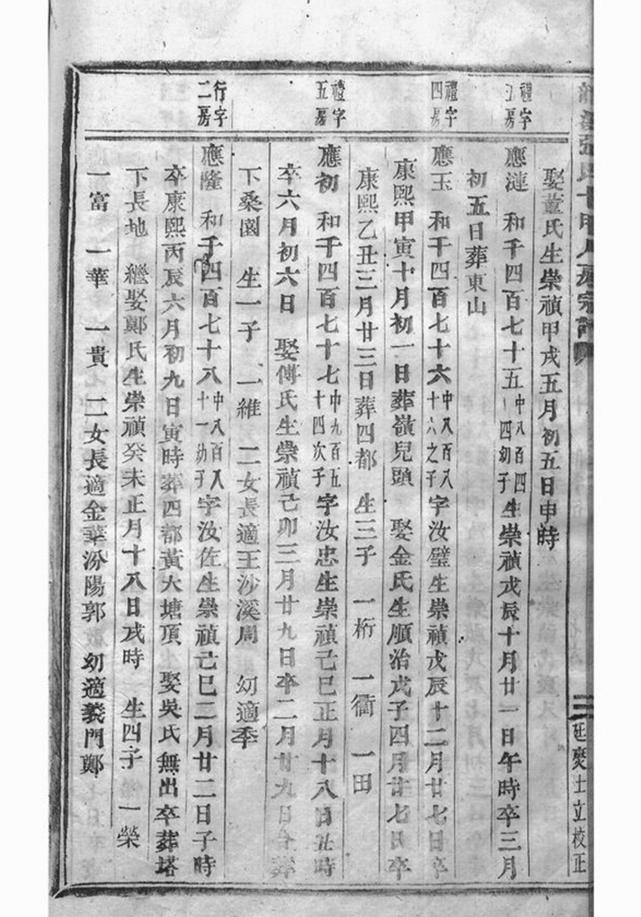 娶董氏生崇禎甲戌五月初五日申時
禮字五房
應漣 和千四百七十五 中八百四十四幼子 生崇禎戊辰十月廿一日午時卒三月
初五日葬東山
禮字四房
應玉 和千四百七十六 中八百八十六之子 字汝璧生崇禎戊辰十二月廿七日卒
康熙甲寅十月初一日葬嶺兒頭 娶金氏生順治戊子四月廿七日卒
康熙乙丑三月廿三日葬四都 生三子 一桁 一衢 一田
禮字五房
應初 和千四百七十七 中九百五十四次子 字汝忠生崇禎己巳正月十八日丑時
卒六月初六日 娶傅氏生崇禎己卯三月廿九日卒二月廿九日合葬
下桑園 生一子 一維 二女長適王沙溪周 幼適季
行字二房
應隆 和千四百七十八 中八百八十一幼子 字汝佐生崇禎己巳二月廿二日子時
卒康熙丙辰六月初九日寅時葬四都黃大塘頂 娶吳氏無出卒葬塔
下長地 繼娶鄭氏生崇禎癸未正月十八日戌時 生四子 一榮
一富 一華 一貴 二女長適金華汾陽郭 幼適義門鄭
三 延慶士立校正